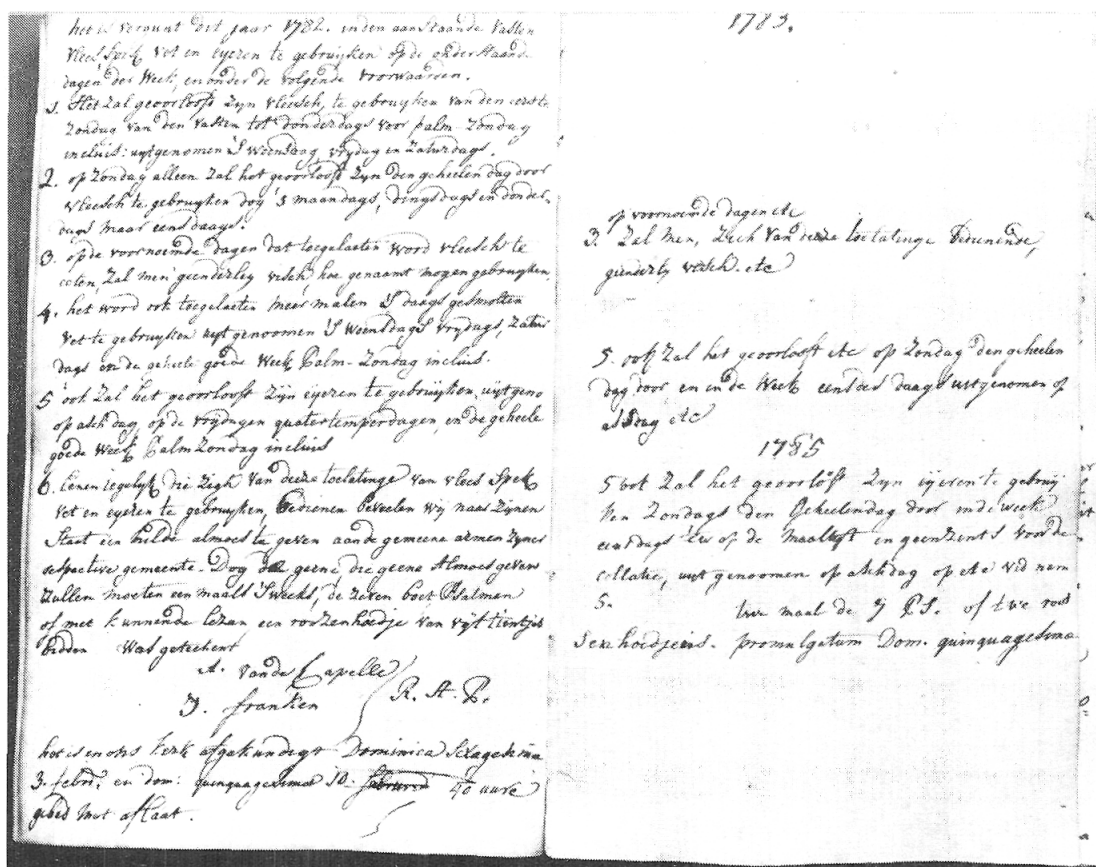 het is vergunt dit jaar 1782. inden aanstaande vasten
vlees, spek, vet en eyeren te gebruyken op de onderstaand.
dagen der week, en onder de volgende voorwaarden.
1. Het zal geoorlooft zyn vleesch, te gebruyken van den eerste
zondag van den vasten tot donderdags voor palm-zondag
incluis: uytgenomen 'S Weensdag, vrydag en zaturdags.
2. op zondag alleen zal het geoorlooft zyn den geheelen dag door
vleesch te gebruyken doy 's maandags, dingsdags en donder-
dags maar eens daags.
3. op de voornoemde dagen dat toegelaeten word vleesch te
eeten, zal men geenderley visch hoe genaamt mogen gebruyken,
4. het word ook toegelaeten meer malen S daags gesmolten
vet te gebruyken uyt genoomen 'S Weensdags vrydags, zatur
dags en de geheele goede Week Palm-Zondag incluis.
5 ook zal het geoorlooft zyn eyeren te gebruyken, uytgeno
op asch dag, op de vrydagen quatertemperdagen, en de geheele
goede Week Palm Zondag incluis
6. eenen iegelyk die zigh van deeze toelatinge van vlees spek
vet en eyeren te gebruyken, bedienen beveelen wy naar zynen
Staet een milde almoes te geven aan de gemeene armen zyner
respective gemeente. Dog die geene die geene Almoes geven
zullen moeten een maal 'S weeks, de zeven boet Psalmen
of niet kunnende lezen een roozenhoedje van vyf tientjes
bidden Was getekent
A. vande Capelle
J. franken R. A. P.
het is in ons kerk afgekundigt Dominica Sexagesima
3. febr. en dom: quinquagesima 10. 40 uure
gebed met aflaat.
1783.
op voornoemde dagen etc
3. Zal men, zich van deeze toelatinge bedienende,
geenderly visch. etc
5. ook zal het geoorlooft etc op zondag den geheelen
dag door en in de Week eens des daags uytgenomen op
asdag etc
1785
5 oot zal het geoorlooft zyn eyeren te gebruy-
ken zondags den geheelen dag door in de week
eens daags op de maaltyt en geenzints voor de
collatie, uyt genoomen op aschdag op etc
5. twe maal de 7 P.S. of twe roo
senhoedjens. promulgatum Dom. quinquagesima